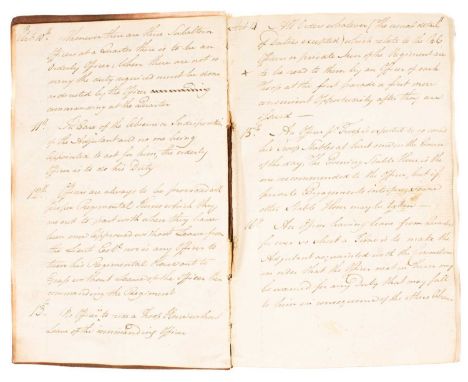 Art 10th Whenever there are three Subaltern
Officers at a Quarter there is to be an
Orderly Officer, When there are not so
many the duty required must be done
or directed by the Officer
commanding at the Quarter
11th In Case of the Absence or Indisposition
of the Adjutant and no one being
appointed to act for him, the orderly
Officer is to do his Duty
12th Officers are always to be provided with
proper Regimental Horses which they
are not to part with when they have
been once approved without Leave from
the Lieut Colo. nor is any Officer to
turn his Regimental Horse out to
grass without Leave of the Officer then
commanding the Regiment
13th No Officer to use a Troop Horse without
Leave of the commanding Officer
Art 14 All Orders whatever (the usual detail
of Duties excepted) which relate to the
Officers or private Men of the Regiment are
to be read to them by an Officer of each
Troop at the first parade or first con-
venient Opportunity after they are
issued
15th An Officer pr Troop is expected to go into
his Troop Stables at least once in the Course
of the day. The Evening Stable Hour is the
one recommended to the Officer, but if
private Engagements interfere
other Stable Hour may be
16th An Officer having leave from
for ever so short a Time is to make the
Adjutant acquainted with the
in order that the Officer next in turn may
be warned for any Duty that may fall
to him in consequence of the others